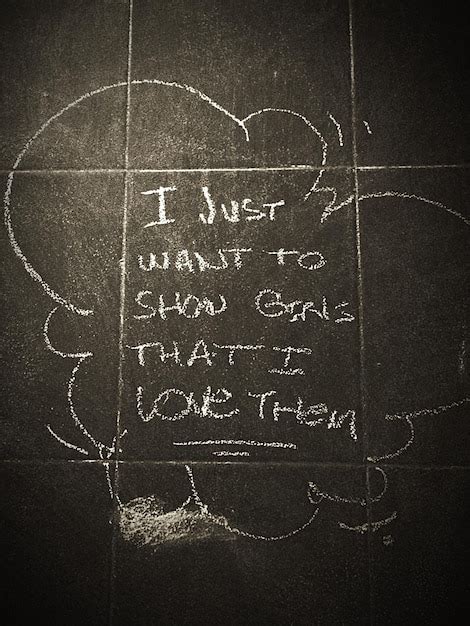 I JUST
WANT TO
SHOW GIRLS
THAT I
LOVE THEM